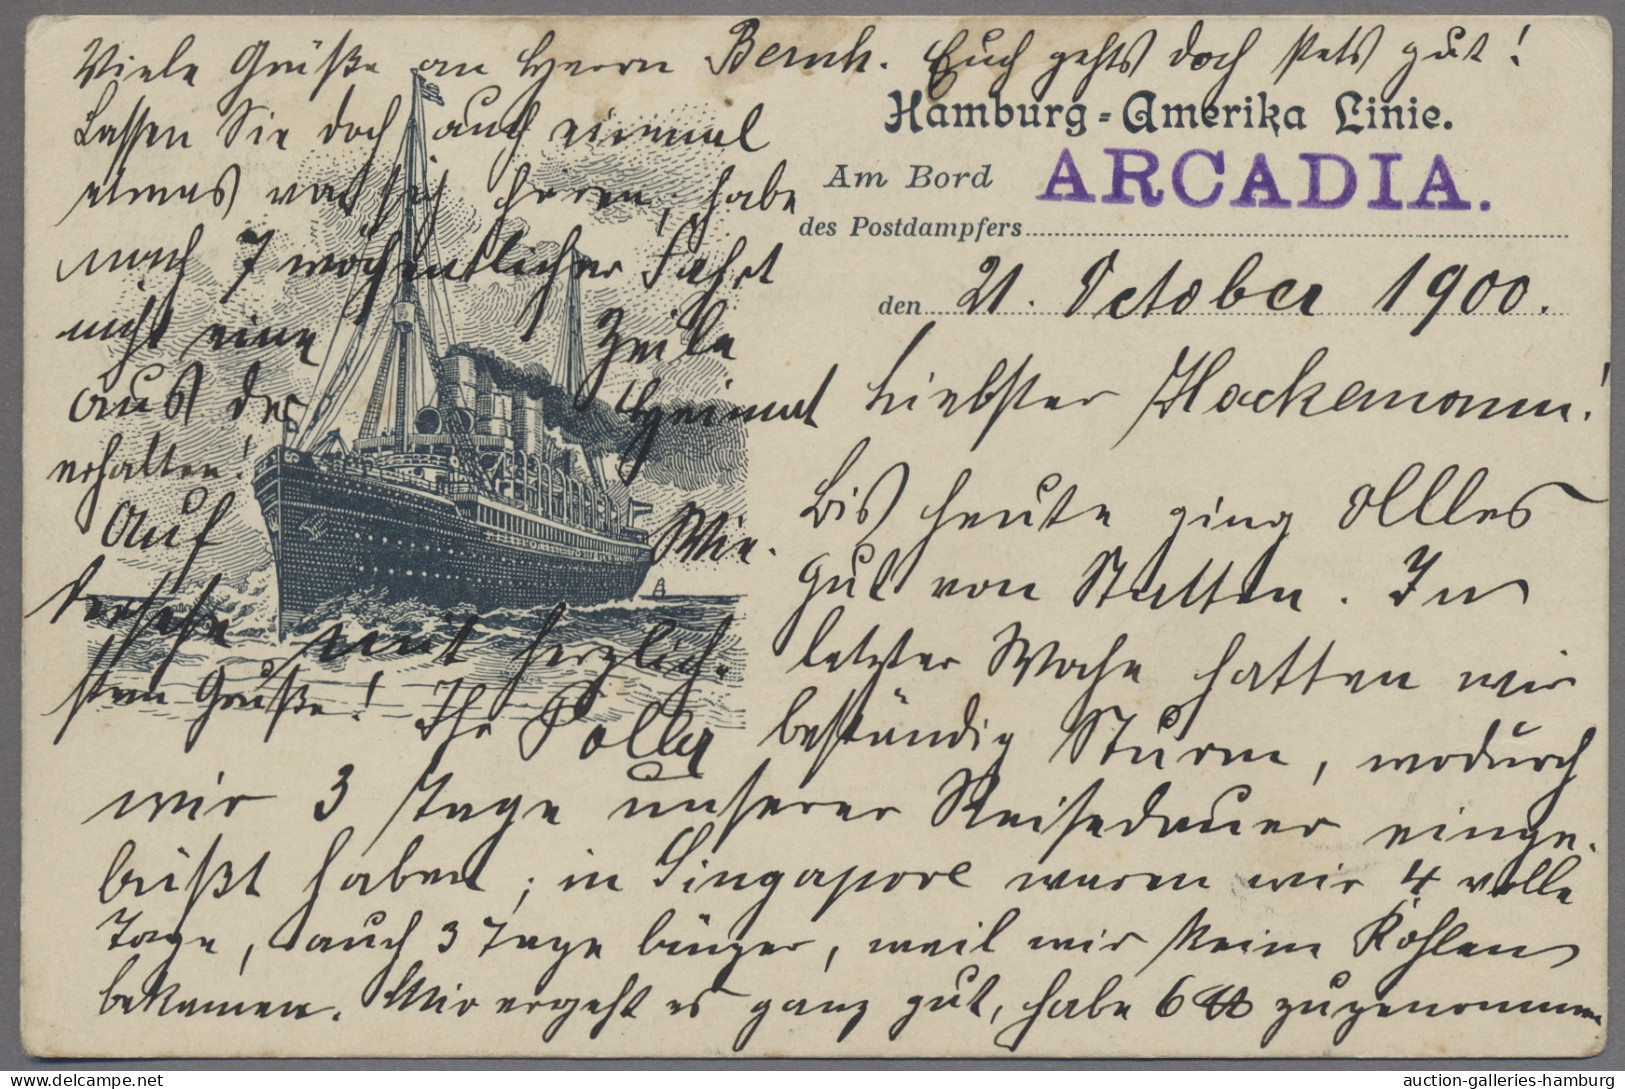 Hamburg-Amerika Linie.
Am Bord
des Postdampfers
ARCADIA.
den 21. October 1900.
Liebster Hackemann!
Bis heute ging Alles
gut von Statten. In
letzter Woche hatten wir
beständig Sturm, wodurch
wir 3 Tage unserer Reisedauer einge-
büßt haben; in Singapore waren wir 4 volle
Tage, auch 3 Tage länger, weil wir keine Kohlen
bekamen. Mir ergeht es ganz gut, habe 6 ℔ zugenommen
Viele Grüße an Herrn Bernh. Euch gehts doch stets gut!
Lassen Sie doch auch einmal
etwas von sich hören, habe
nach 7 wöchentlicher Fahrt
nicht eine Zeile
aus der Heimat
erhalten!
Auf Wie-
dersehn mit herzlich-
sten Grüßen! Ihr